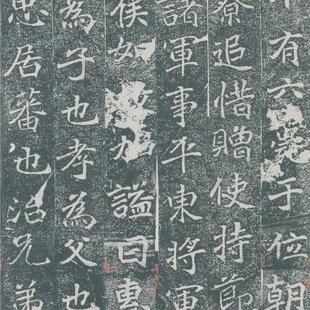 有六薨于位朝
寮追惜贈使持節
諸軍事平東將軍
侯如加謚曰惠
為子也孝為父也
居蕃也治兄弟